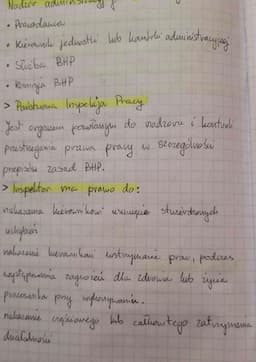 Nadzór administracyjny
• Pracodawca
• Kierownik jednostki lub kontroli administracyjnej
• Służba BHP
• Komisja BHP
> Państwowa Inspekcja Pracy
Jest organem powołanym do nadzoru i kontroli
przestrzegania prawa pracy w szczególności
przepisów zasad BHP.
> Inspektor ma prawo do:
nakazania kierownikowi usunięcia stwierdzonych
uchybień
nakazanie kierownikowi wstrzymanie prac, podczas
wystąpienia zagrożeń dla zdrowia lub życia
pracownika przy wykonywaniu.
nakazanie częściowego lub całkowitego zatrzymania
działalności